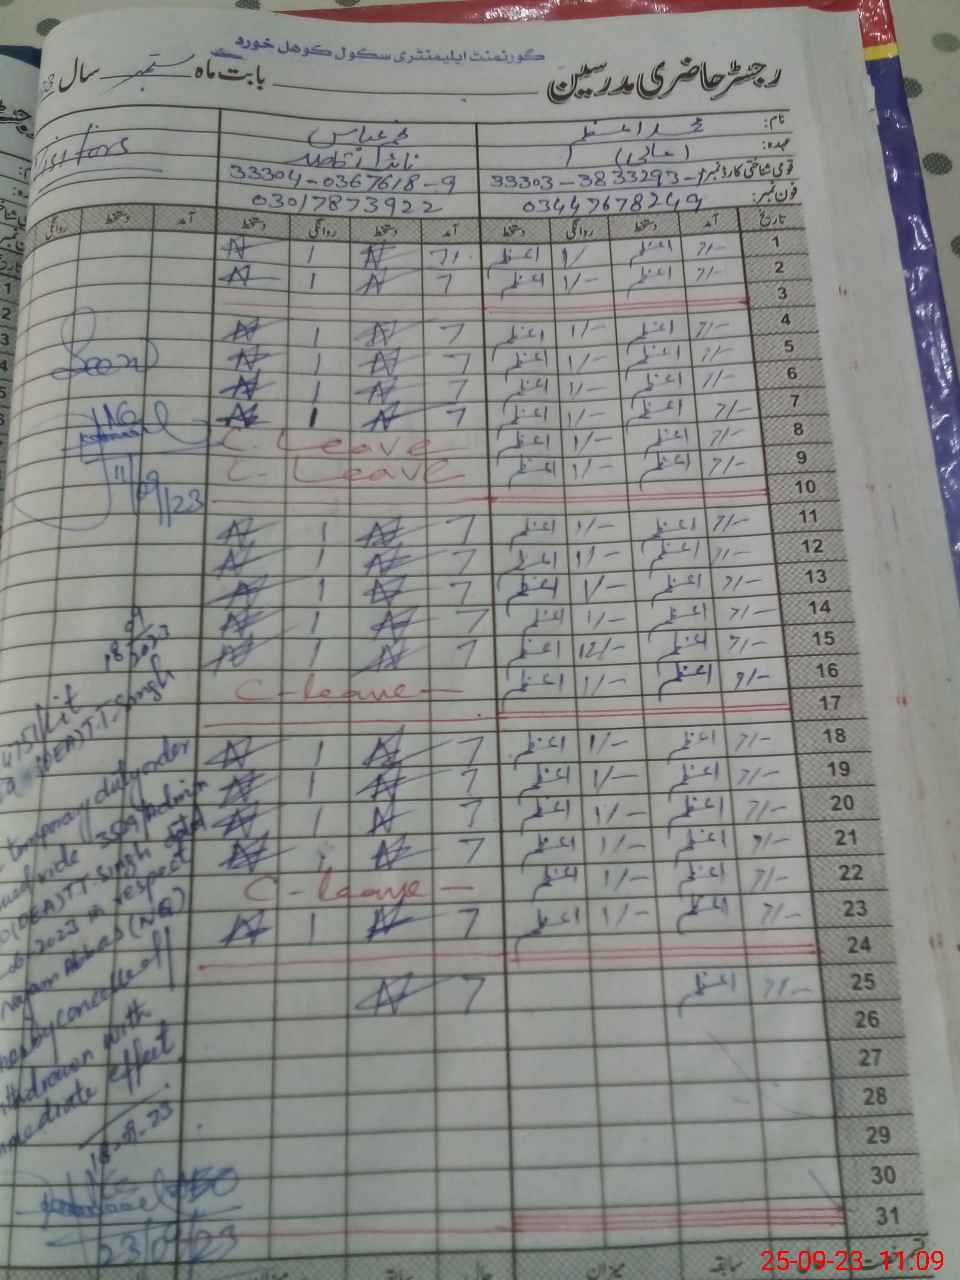 گورنمنٹ ایلیمنٹری سکول کوهل خورد
رجسٹر حاضری مدرسین بابت ماہ ستمبر سال
نام: محمد اعظم نجم عباس
عہدہ:
قومی شناختی کارڈ نمبر 33303-3833293-1 33304-0367618-9
فون نمبر: 03447678249 03017873922
Visitors
تاریخ آمد دستخط روانگی دستخط آمد دستخط روانگی دستخط آمد دستخط روانگی
1 7/- اعظم 1/- اعظم 7/- 1
2 7/- اعظم 1/- اعظم 7 1
3
4 7/- اعظم 1/- اعظم 7 1
5 7/- اعظم 1/- اعظم 7 1
6 7/- اعظم 1/- اعظم 7 1
7 7/- اعظم 1/- اعظم 7 1
8 7/- اعظم 1/- اعظم C Leave
9 7/- اعظم 1/- اعظم C- Leave
10
11 7/- اعظم 1/- اعظم 7 1
12 7/- اعظم 1/- اعظم 7 1
13 7/- اعظم 1/- اعظم 7 1
14 7/- اعظم 1/- اعظم 7 1
15 7/- اعظم 12/- اعظم 7 1
16 7/- اعظم 1/- اعظم C-leave-
17
18 7/- اعظم 1/- اعظم 7 1
19 7/- اعظم 1/- اعظم 7 1
20 7/- اعظم 1/- اعظم 7 1
21 7/- اعظم 1/- اعظم 7
22 7/- اعظم 1/- اعظم C-leave-
23 7/- اعظم 1/- اعظم 7 1
24
25 7/- اعظم 7
26
27
28
29
30
31
Seen
11/09/23
18/09/2023
(DEA) T.T.Singh
temporary duty order
vide 359/Admin
(DEA) T.T.Singh dated
2023 in respect
Najam Abbas (NQ)
hereby cancelled
withdrawn with
immediate effect
18-9-23
23/09/23
سابقہ میزان سابقہ میزان
25-09-23 11:09